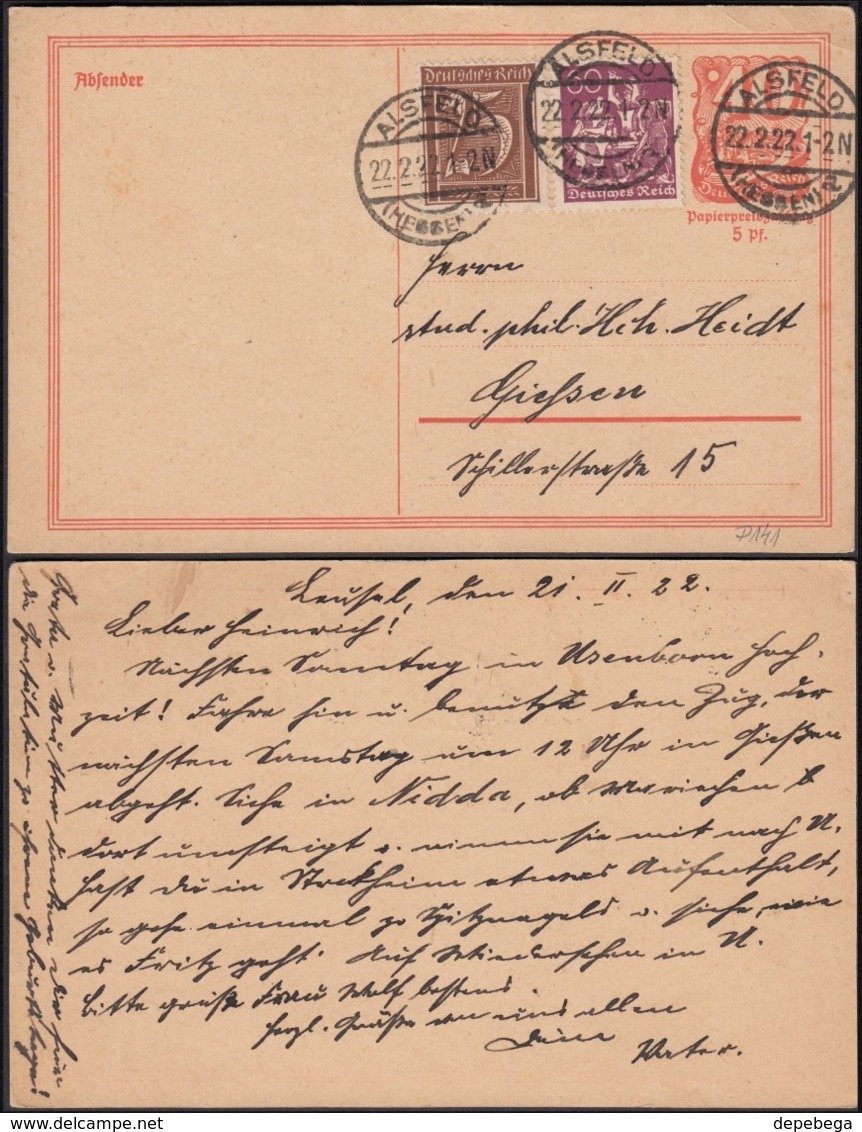 Absender
Deutsches Reich
25
60
Deutsches Reich
40
Deutsches Reich
ALSFELD
22.2.22.1-2N
(HESSEN) 2
ALSFELD
22.2.22.1-2N
(HESSEN) 2
ALSFELD
22.2.22.1-2N
(HESSEN) 2
Papierpreiszuschlag
5 Pf.
Herrn
stud. phil. Hch. Heidt
Giessen
Schillerstraße 15
P141
Leusel, den 21. II. 22.
Lieber Heinrich!
Nächsten Samstag in Usenborn Hoch-
zeit! Fahre hin u. benutzt den Zug, der
nächsten Samstag um 12 Uhr in Gießen
abgeht. Siehe in Nidda, ob Mariechen
dort umsteigt u. nimm sie mit nach U.
Hast du in Stockheim etwas Aufenthalt,
so gehe einmal zu Spitznagels u. siehe, wie
es Fritz geht. Auf Wiedersehen in U.
Bitte grüße Frau Wolf bestens.
Herzl. Grüße von uns allen
Dein
Vater.
u. Mutter danken dir für
die Gratulation zu ihrem Geburtstage!
depebega